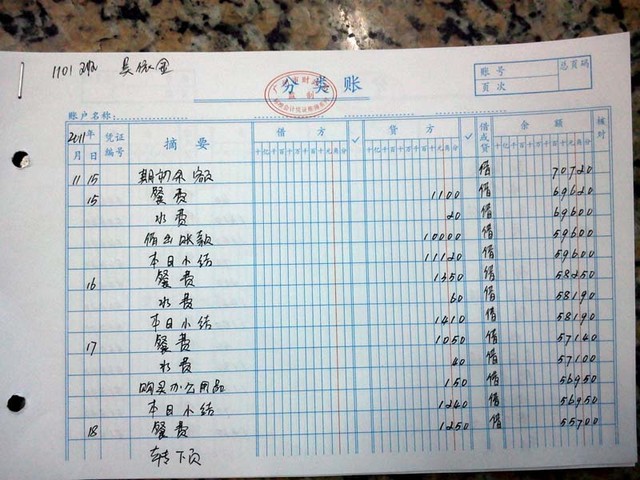 1101班 吴依金
分类账
账号 总页码
页次
账户名称:
2011年 凭证 摘要 借方 贷方 借或贷 余额 核对
月 日 编号 千百十亿千百十万千百十元角分
11 15 期初余额 借 70720
15 餐费 1100 借 69620
水费 20 借 69600
借出账款 10000 借 59600
本日小结 11120 借 59600
16 餐费 1350 借 58250
水费 60 借 58190
本日小结 1410 借 58190
17 餐费 1050 借 57140
水费 40 借 57100
购买办公用品 150 借 56950
本日小结 1240 借 56950
18 餐费 1250 借 55700
转下页